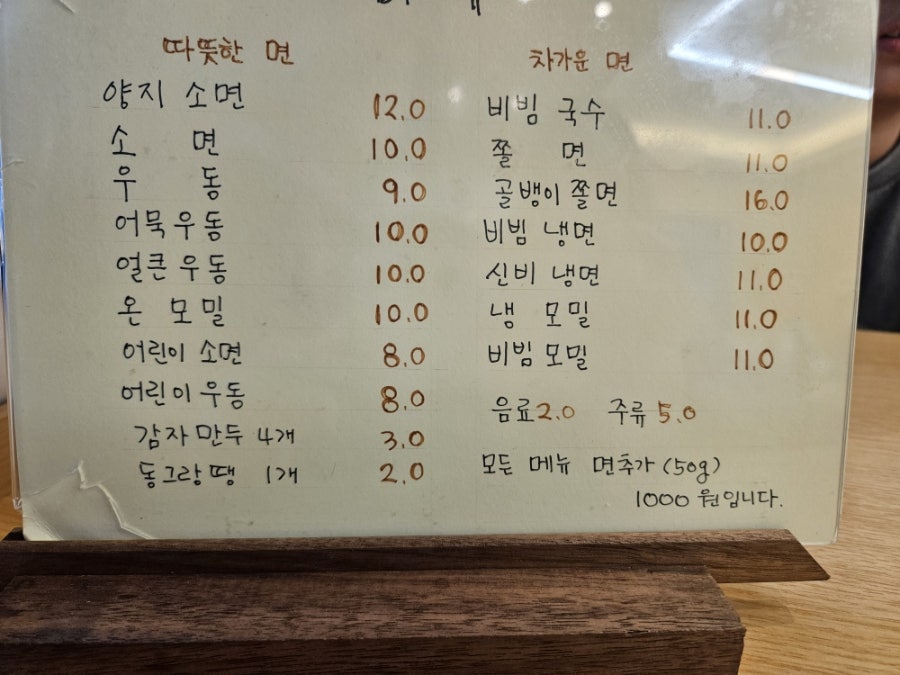 따뜻한 면
양지 소면 12.0
소 면 10.0
우 동 9.0
어묵우동 10.0
얼큰우동 10.0
온 모밀 10.0
어린이 소면 8.0
어린이우동 8.0
감자만두 4개 3.0
동그랑땡 1개 2.0
차가운 면
비빔 국수 11.0
쫄 면 11.0
골뱅이쫄면 16.0
비빔 냉면 10.0
신비 냉면 11.0
냉 모밀 11.0
비빔모밀 11.0
음료2.0 주류 5.0
모든 메뉴 면추가 (50g)
1000 원입니다.